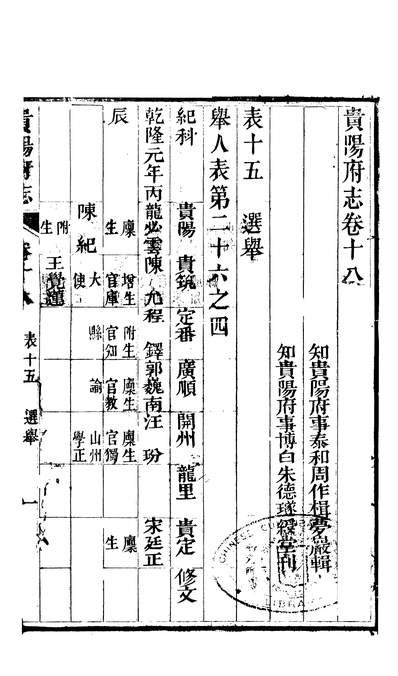 貴陽府志卷十八
知貴陽府事泰和周作楫夢巖輯
知貴陽府事博白朱德璲綬堂刊
表十五 選舉
舉人表第二十六之四
紀科 貴陽 貴筑 定番 廣順 開州 龍里 貴定 修文
乾隆元年丙 龍必雲 陳允程 鐸 郭巍南 汪玢 宋廷正
辰 廪生 增生官庫大使 附生官知縣 廪生官教諭 廪生官獨山州學正 廪生
陳紀
王覺蓮
附生
貴陽府志 卷十八 表十五 選舉 一
CHINESE
LIBRA